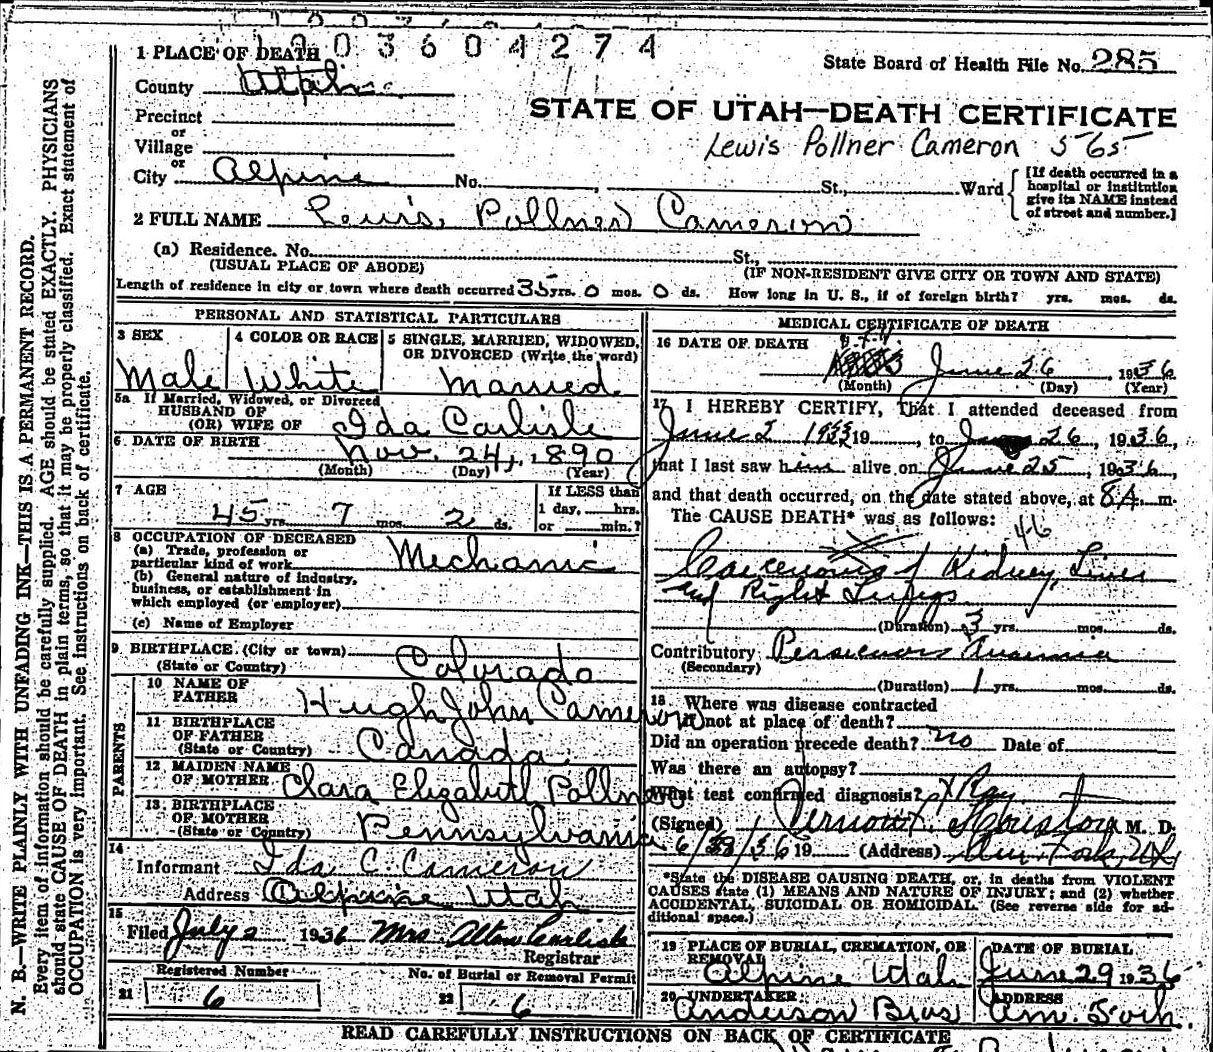 1003604274
1 PLACE OF DEATH
State Board of Health File No. 285
County
STATE OF UTAH—DEATH CERTIFICATE
Precinct
or
Lewis Pollner Cameron 565
Village
or
City Alpine No. , St., Ward
[If death occurred in a
hospital or institution
give its NAME instead
of street and number.]
2 FULL NAME Lewis Pollner Cameron
(a) Residence. No. St.,
(USUAL PLACE OF ABODE) (IF NON-RESIDENT GIVE CITY OR TOWN AND STATE)
Length of residence in city or town where death occurred 35 yrs. 0 mos. 0 ds. How long in U. S., if of foreign birth? yrs. mos. ds.
PERSONAL AND STATISTICAL PARTICULARS
3 SEX 4 COLOR OR RACE 5 SINGLE, MARRIED, WIDOWED,
OR DIVORCED (Write the word)
Male White Married
5a If Married, Widowed, or Divorced
HUSBAND OF
(OR) WIFE OF Ida Carlisle
6 DATE OF BIRTH Nov. 24, 1890
(Month) (Day) (Year)
7 AGE If LESS than
1 day, hrs.
45 yrs. 7 mos. 2 ds. or min.?
8 OCCUPATION OF DECEASED
(a) Trade, profession or
particular kind of work Mechanic
(b) General nature of industry,
business, or establishment in
which employed (or employer)
(c) Name of Employer
9 BIRTHPLACE (City or town)
(State or Country) Colorado
PARENTS
10 NAME OF
FATHER Hugh John Cameron
11 BIRTHPLACE
OF FATHER
(State or Country) Canada
12 MAIDEN NAME
OF MOTHER Clara Elizabeth Pollner
13 BIRTHPLACE
OF MOTHER
(State or Country) Pennsylvania
14
Informant Ida C. Cameron
Address Alpine Utah
15
Filed July 2 1936 Mrs. Alton Carlisle
Registrar
Registered Number No. of Burial or Removal Permit
21 6 22 6
MEDICAL CERTIFICATE OF DEATH
16 DATE OF DEATH
June 26, 1936
(Month) (Day) (Year)
17 I HEREBY CERTIFY, That I attended deceased from
June 2 1933 19, to June 26, 1936,
that I last saw him alive on June 25, 1936,
and that death occurred, on the date stated above, at 8 A. m.
The CAUSE DEATH* was as follows:
46
Carcenomia of Kidney, Liver
and Right Lungs
(Duration) 3 yrs. mos. ds.
Contributory Pernicious Anaemia
(Secondary)
(Duration) 1 yrs. mos. ds.
18 Where was disease contracted
if not at place of death?
Did an operation precede death? no Date of
Was there an autopsy?
What test confirmed diagnosis? X Ray
(Signed) Vernon F. Houston M. D.
6/28/36 19 (Address) Am Fork, Ut
*State the DISEASE CAUSING DEATH, or, in deaths from VIOLENT
CAUSES state (1) MEANS AND NATURE OF INJURY; and (2) whether
ACCIDENTAL, SUICIDAL OR HOMICIDAL. (See reverse side for ad-
ditional space.)
19 PLACE OF BURIAL, CREMATION, OR
REMOVAL DATE OF BURIAL
Alpine Utah June 29 1936
20 UNDERTAKER ADDRESS
Anderson Bros Am. Fork
READ CAREFULLY INSTRUCTIONS ON BACK OF CERTIFICATE
N. B.—WRITE PLAINLY WITH UNFADING INK—THIS IS A PERMANENT RECORD.
Every item of information should be carefully supplied. AGE should be stated EXACTLY. PHYSICIANS
should state CAUSE OF DEATH in plain terms, so that it may be properly classified. Exact statement of
OCCUPATION is very important. See instructions on back of certificate.